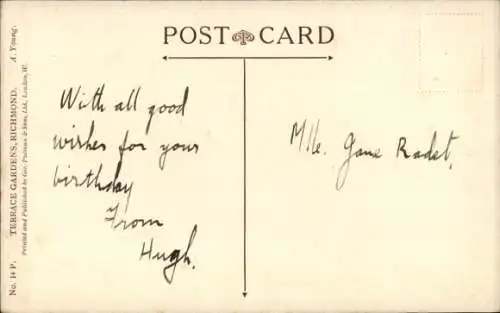 POST CARD
With all good
wishes for your
birthday
From
Hugh.
Mlle. Jane Radet.
No. 14 P. TERRACE GARDENS, RICHMOND. A. Young.
Printed and Published by Geo. Pulman & Sons, Ltd., London, W.